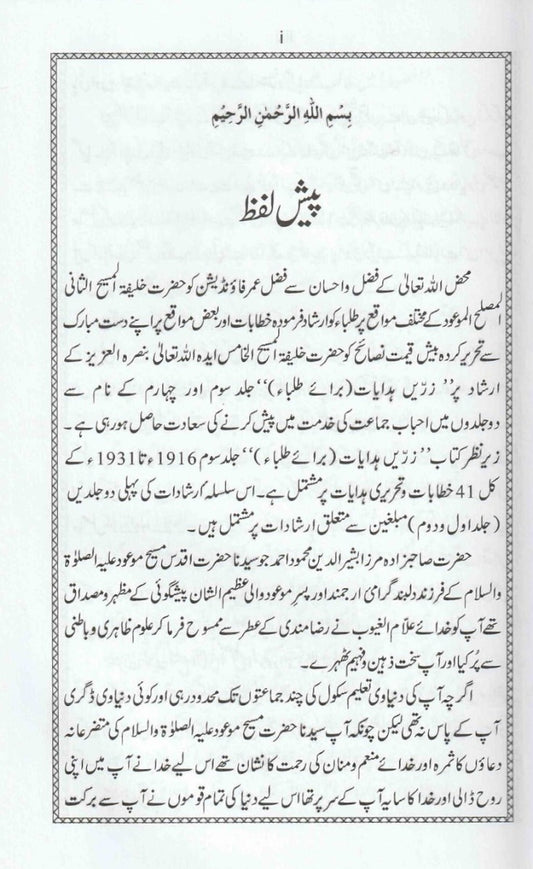 i
بِسْمِ اللّٰهِ الرَّحْمٰنِ الرَّحِيْمِ
پیش لفظ
محض اللہ تعالیٰ کے فضل و احسان سے فضل عمر فاؤنڈیشن کو حضرت خلیفۃ المسیح الثانی
المصلح الموعود کے مختلف مواقع پر طلباء کو ارشاد فرمودہ خطابات اور بعض مواقع پر اپنے دست مبارک
سے تحریر کردہ بیش قیمت نصائح کو حضرت خلیفۃ المسیح الخامس ایدہ اللہ تعالیٰ بنصرہ العزیز کے
ارشاد پر ’’زرّیں ہدایات (برائے طلباء)‘‘ جلد سوم اور چہارم کے نام سے
دو جلدوں میں احباب جماعت کی خدمت میں پیش کرنے کی سعادت حاصل ہو رہی ہے۔
زیر نظر کتاب ’’زرّیں ہدایات (برائے طلباء)‘‘ جلد سوم 1916ء تا 1931ء کے
کل 41 خطابات و تحریری ہدایات پر مشتمل ہے۔ اس سلسلہ ارشادات کی پہلی دو جلدیں
(جلد اول و دوم) مبلغین سے متعلق ارشادات پر مشتمل ہیں۔
حضرت صاحبزادہ مرزا بشیر الدین محمود احمد جو سیدنا حضرت اقدس مسیح موعود علیہ الصلوٰۃ
والسلام کے فرزند دلبند گرامی ارجمند اور پسرِ موعود والی عظیم الشان پیشگوئی کے مظہر و مصداق
تھے آپ کو خدائے علّام الغیوب نے رضا مندی کے عطر سے ممسوح فرما کر علوم ظاہری و باطنی
سے پُر کیا اور آپ سخت ذہین و فہیم ٹھہرے۔
اگرچہ آپ کی دنیاوی تعلیم سکول کی چند جماعتوں تک محدود رہی اور کوئی دنیاوی ڈگری
آپ کے پاس نہ تھی لیکن چونکہ آپ سیدنا حضرت مسیح موعود علیہ الصلوٰۃ والسلام کی متضرعانہ
دعاؤں کا ثمرہ اور خدائے منعم و منان کی رحمت کا نشان تھے اس لیے خدا نے آپ میں اپنی
روح ڈالی اور خدا کا سایہ آپ کے سر پر تھا اس لیے دنیا کی تمام قوموں نے آپ سے برکت